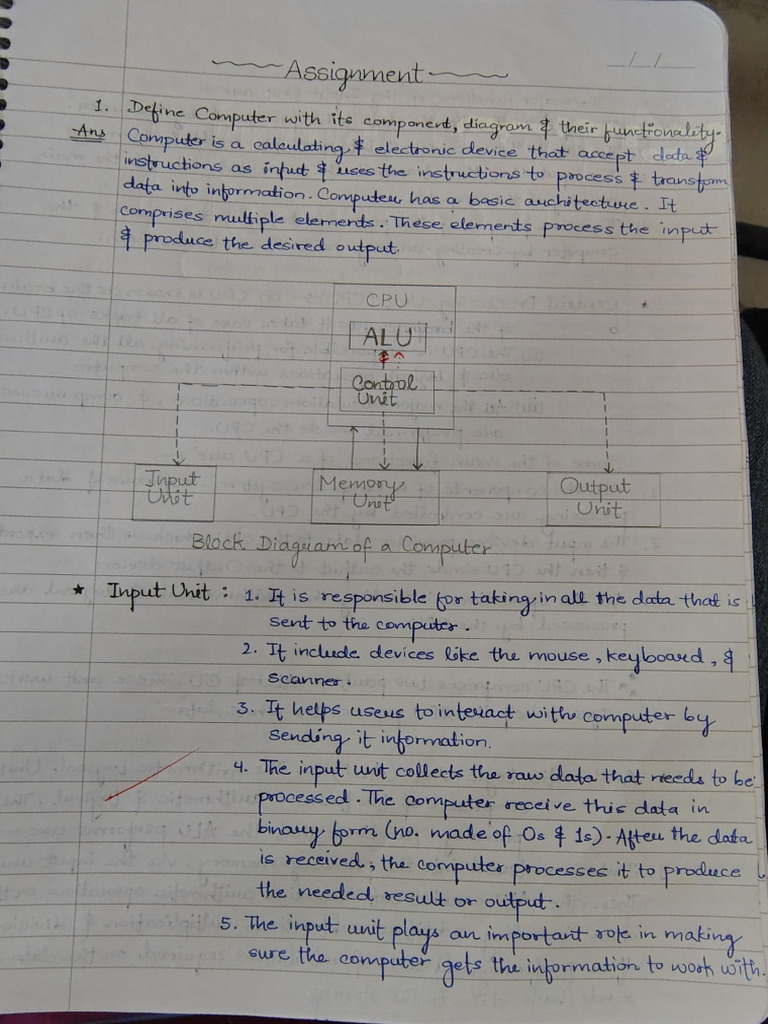 Assignment
1. Define Computer with its component, diagram & their functionality.
Ans Computer is a calculating & electronic device that accept data &
instructions as input & uses the instructions to process & transform
data into information. Computer has a basic architecture. It
comprises multiple elements. These elements process the input
& produce the desired output.
CPU
ALU
Control
Unit
Input
Unit
Memory
Unit
Output
Unit
Block Diagram of a Computer
* Input Unit : 1. It is responsible for taking in all the data that is
sent to the computer.
2. It include devices like the mouse, keyboard, &
scanner.
3. It helps users to interact with computer by
sending it information.
4. The input unit collects the raw data that needs to be
processed. The computer receive this data in
binary form (no. made of 0s & 1s). After the data
is received, the computer processes it to produce
the needed result or output.
5. The input unit plays an important role in making
sure the computer gets the information to work with.